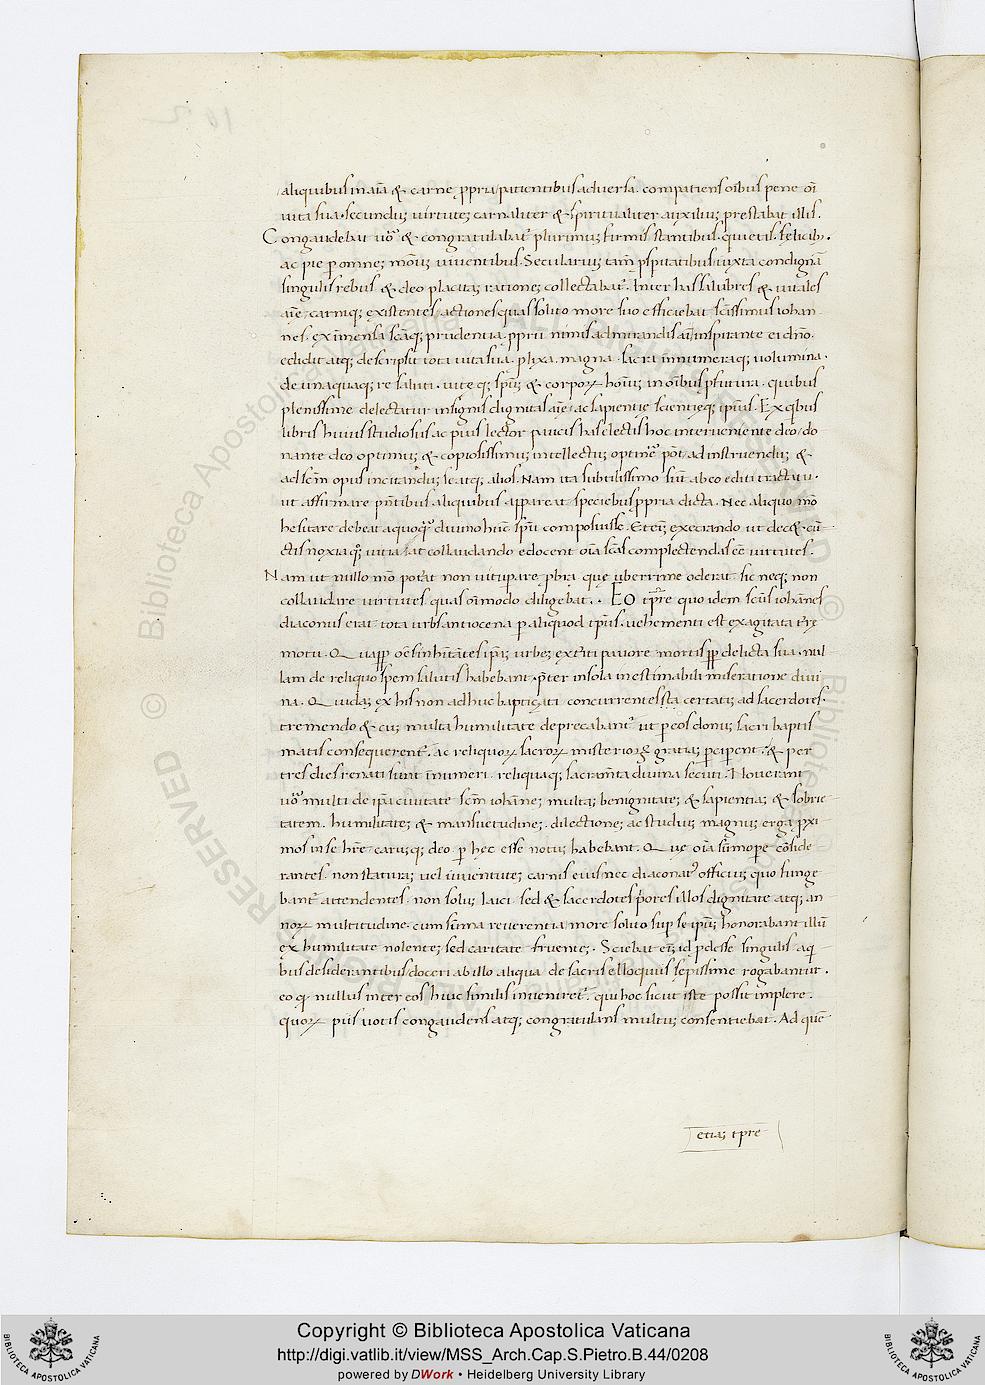 aliquibus in aīa & carne ꝓpria patientibus adversa. compatiens oībus pene oī
vita sua. secundum virtutem carnaliter & spiritualiter auxilium prestabat illis.
Congaudebat vō & congratulabat plurimum firmis stantibus. quietis. felicib;.
ac pie ꝑ omnem moūm viventibus. Secularium tam̄ ꝓspitatibus iuxta condignā
singulis rebus & deo placitam rationem collectabat. Inter has salubres & vitales
aīe, carnisq; existentes actiones quas solito more suo efficiebat scīssimus iohan-
nes. ex īmensa scāq; prudentia. ꝓprii nimis admirandis aūt inspirante ei dnō.
edidit atq; descripsit tota vita sua. plixa. magna. sacra innumeraq; volumina.
de unaquaq; re saluti. viteq; spūm & corporꝝ hoīum in oībus ꝓfutura. quibus
plenissime delectatur insignis dignitas aīe, ac sapientie scientieq; ipsius. Ex qbus
libris huius studiosus ac pius lector paucis his electis hoc interveniente deo, do
nante deo optimum & copiosissimum intellectum optinere pōt, ad instruendum &
ad scm̄ opus incitandum se atq; alios. Nam ita subtilissimo sunt ab eo editi tractatu.
ut affirmare pn̄tibus aliquibus appareat speciebus ꝓpria dicta. Nec aliquo mō
hesitare debeat a quoq; divino hunc spū composuisse. Etenim execrando ut decet cū-
ctis noxiaq; vitia, sat collaudando edocent oīa scās complectendas eē virtutes.
Nam ut nullo mō poterat non vituperare ꝓbra que uberrime oderat. sic neq; non
collaudare virtutes quas oīmodo diligebat. EO tpr̄e quo idem scūs iohānes
diaconus erat. tota urbs antiocena ꝑ aliquod tpūs. vehementi est exagitata tre
motu. Quappꝑ oēs inhītantes ipsam urbem exterriti pavore mortis ꝓpꝑ delicta sua. nul
lam de reliquo spem salutis habebant. pter in sola inestimabili miseratione divi
na. Quidam ex his non adhuc baptiçati concurrentes ista certatim ad sacerdotes.
tremendo & cum multa humilitate deprecabant ut ꝑ eos donum sacri baptis
matis consequerent. ac reliquoꝝ sacroꝝ misterioꝝ gratiam pciperent. & per
tres dies renati sunt īnumeri. reliquaq; sacramta divina secuti. Noverant
vō multi de ipsa civitate scm̄ iohānem multam benignitatem & sapientiam & sobrie
tatem. humilitatem & mansuetudinem. dilectionem ac studium magnum erga pxi
mos in se hr̄e. carumq; deo ꝑ hec esse notum habebant. Que oīa summopere cōside
rantes. non staturam vel iuventutem carnis eius nec diaconat officium quo funge
bant attendentes. non solum laici. sed & sacerdotes pores illos dignitate atq; an
noꝝ multitudine. cum summa reverentia more solito sup se ipsum honorabant illū
ex humilitate nolentem sed caritate ferventem. Sciebat enim id pdesse singulis. a q
bus desiderantibus doceri ab illo aliqua de sacris elloquiis sepissime rogabantur.
eo q nullus inter eos huic similis inveniret. qui hoc sicut iste possit implere.
quoꝝ piis votis congaudens atq; congratulans multum consentiebat. Ad quē
etiam tpr̄e
Copyright © Biblioteca Apostolica Vaticana
http://digi.vatlib.it/view/MSS_Arch.Cap.S.Pietro.B.44/0208
powered by DWork • Heidelberg University Library